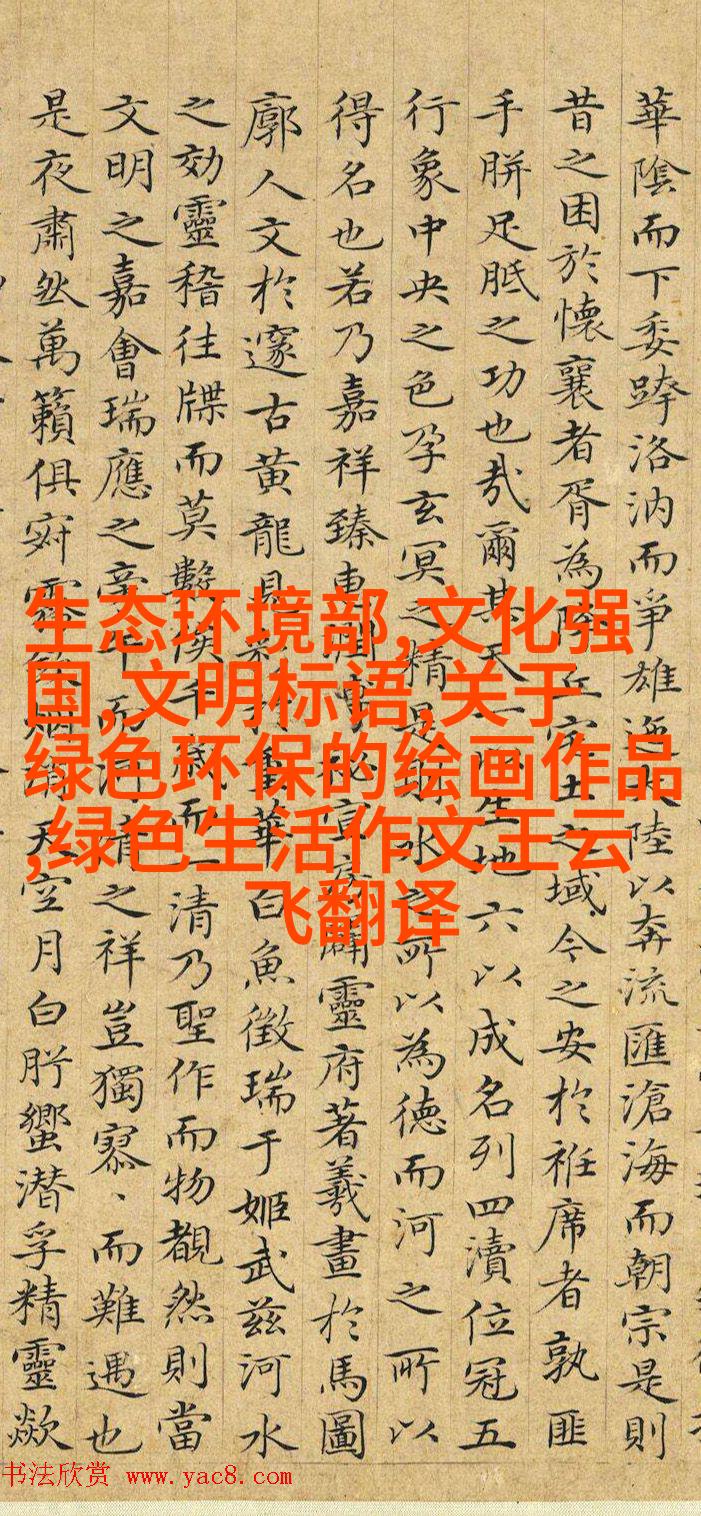 華陰而下委跨洛汭而爭雄迤大陸以奔流匯滄海而朝宗是則
昔之困於懷襄者胥為降丘宅土之域今之安於袵席者孰匪
手胼足胝之功也哉爾其天一以生地六以成名列四瀆位冠五
行象中央之色孕玄冥之精是則水之所以為德而河之所以
得名也若乃嘉祥臻秘宣闢靈府著羲畫於馬圖
廓人文於邃古黃龍見華白魚徵瑞于姬武茲河水
之効靈稽往牒而莫俟千歲而一清乃聖作而物覩然則當
文明之嘉會瑞應之而河清之祥豈獨寥、而難遇也
是夜肅然萬籟俱寂霧斂烟消天空月白肸蠁潛孚精靈歘
生态环境部,文化强
国,文明标语,关于
绿色环保的绘画作品
,绿色生活作文王云
飞翻译
书法欣赏 www.yac8.com